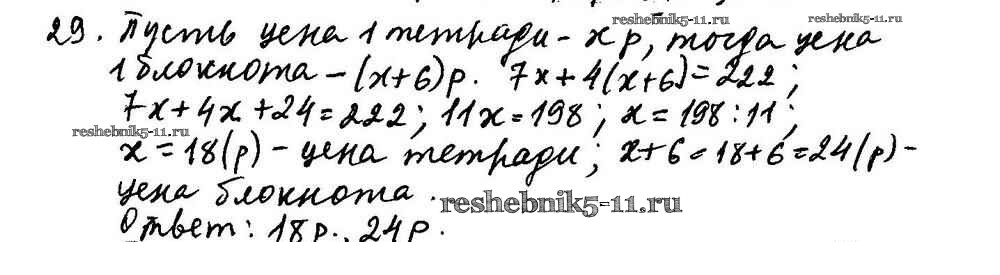 reshebnik5-11.ru reshebnik5-11.ru
29. Пусть цена 1 тетради - х р, тогда цена
1 блокнота - (х+6) р. 7х + 4(х+6) = 222;
7х + 4х + 24 = 222; 11х = 198; х = 198 : 11;
reshebnik5-11.ru
х = 18(р) - цена тетради; х+6 = 18+6 = 24(р) -
цена блокнота.
reshebnik5-11.ru
Ответ: 18р., 24р.